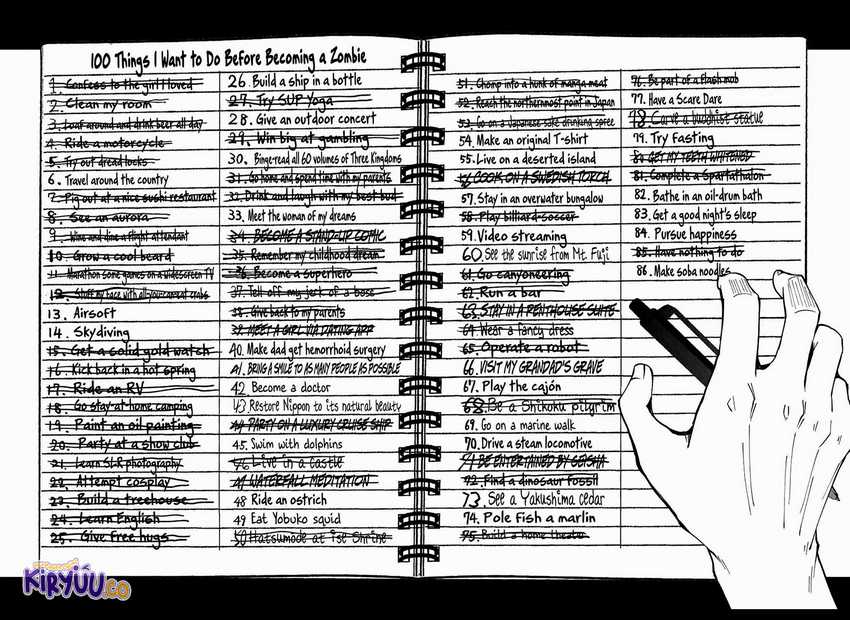 100 Things I Want to Do Before Becoming a Zombie
1. Confess to the girl I loved
2. Clean my room
3. Loaf around and drink beer all day
4. Ride a motorcycle
5. Try out dread locks
6. Travel around the country
7. Pig out at a nice sushi restaurant
8. See an aurora
9. Wine and dine a flight attendant
10. Grow a cool beard
11. Marathon some games on a widescreen TV
12. Stuff my face with all-you-can-eat crabs
13. Airsoft
14. Skydiving
15. Get a solid gold watch
16. Kick back in a hot spring
17. Ride an RV
18. Go stay-at-home camping
19. Paint an oil painting
20. Party at a show club
21. Learn SLR photography
22. Attempt cosplay
23. Build a treehouse
24. Learn English
25. Give free hugs
26. Build a ship in a bottle
27. Try SUP Yoga
28. Give an outdoor concert
29. Win big at gambling
30. Binge-read all 60 volumes of Three Kingdoms
31. Go home and spend time with my parents
32. Drink and laugh with my best bud
33. Meet the woman of my dreams
34. BECOME A STAND-UP COMIC
35. Remember my childhood dream
36. Become a superhero
37. Tell off my jerk of a boss
38. Give back to my parents
39. MEET A GIRL VIA DATING APP
40. Make dad get hemorrhoid surgery
41. BRING A SMILE TO AS MANY PEOPLE AS POSSIBLE
42. Become a doctor
43. Restore Nippon to its natural beauty
44. PARTY ON A LUXURY CRUISE SHIP
45. Swim with dolphins
46. Live in a castle
47. WATERFALL MEDITATION
48 Ride an ostrich
49 Eat Yobuko squid
50 Hatsumode at Ise Shrine
51. Chomp into a hunk of manga meat
52. Reach the northernmost point in Japan
53. Go on a Japanese sake drinking spree
54. Make an original T-shirt
55. Live on a deserted island
56 COOK ON A SWEDISH TORCH
57. Stay in an overwater bungalow
58. Play billiard-soccer
59. Video streaming
60. See the sunrise from Mt. Fuji
61. Go canyoneering
62. Run a bar
63. STAY IN A PENTHOUSE SUITE
64. Wear a fancy dress
65. Operate a robot
66. VISIT MY GRANDAD'S GRAVE
67. Play the cajón
68. Be a Shikoku pilgrim
69. Go on a marine walk
70. Drive a steam locomotive
71 BE ENTERTAINED BY GEISHA
72. Find a dinosaur fossil
73. See a Yakushima cedar
74. Pole Fish a marlin
75. Build a home theater
76. Be part of a flash mob
77. Have a Scare Dare
78 Carve a buddhist statue
79. Try Fasting
80. GET MY TEETH WHITENED
81. Complete a Spartathalon
82. Bathe in an oil-drum bath
83. Get a good night's sleep
84. Pursue happiness
85. Have nothing to do
86. Make soba noodles
KIRYUU.CO